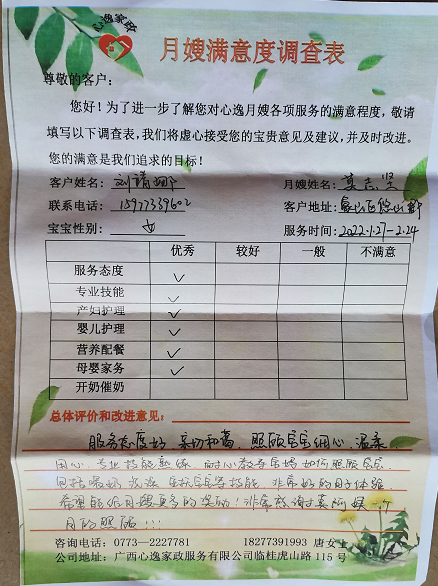 心逸家政
月嫂满意度调查表
尊敬的客户：
您好！为了进一步了解您对心逸月嫂各项服务的满意程度，敬请
填写以下调查表，我们将虚心接受您的宝贵意见及建议，并及时改进。
您的满意是我们追求的目标！
客户姓名： 月嫂姓名：
联系电话：15977339602 客户地址：
宝宝性别：女 服务时间：2022.1.27-2.24
优秀 较好 一般 不满意
服务态度 ✓
专业技能 ✓
产妇护理 ✓
婴儿护理 ✓
营养配餐 ✓
母婴家务 ✓
开奶催奶
总体评价和改进意见：
服务态度好 亲切和蔼、照顾宝宝细心、温柔
用心、专业技能熟练、耐心教导宝妈如何照顾宝宝
非常好的月子体验
希望能给月嫂更多的奖励！非常感谢 一个
月的照顾！！！
咨询电话：0773—2227781 18277391993 唐女士
公司地址：广西心逸家政服务有限公司临桂虎山路 115 号